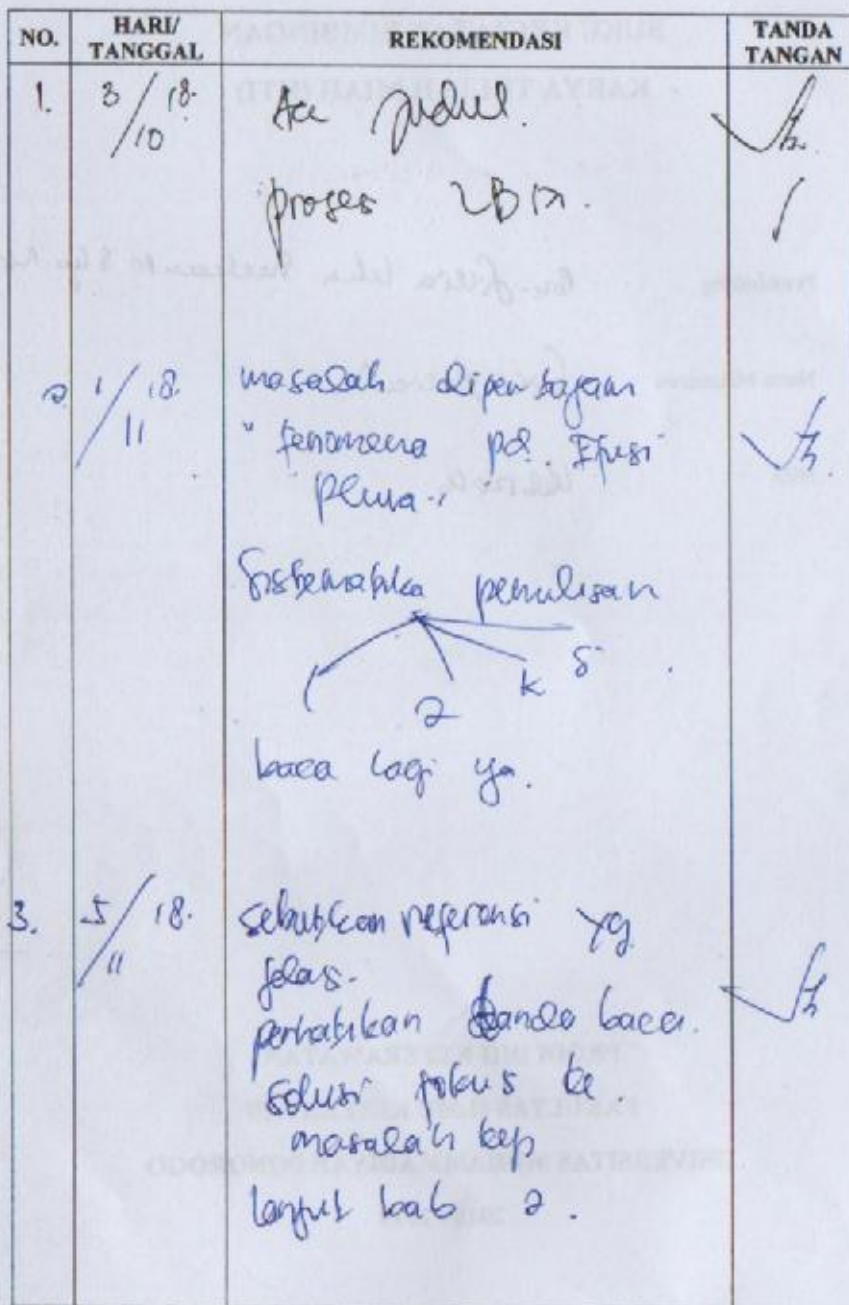 NO. HARI/TANGGAL REKOMENDASI TANDA TANGAN
1. 3/10 18. Acc Judul.
proses BAB 1.
2. 1/11 18. masalah dipertajam
" fenomena pd. Efusi
pleura.
Sistematika penulisan
( 2 k S
baca lagi ya.
3. 5/11 18. sebutkan referensi yg
jelas.
perhatikan tanda baca.
solusi fokus ke
masalah kep
lanjut bab 2.